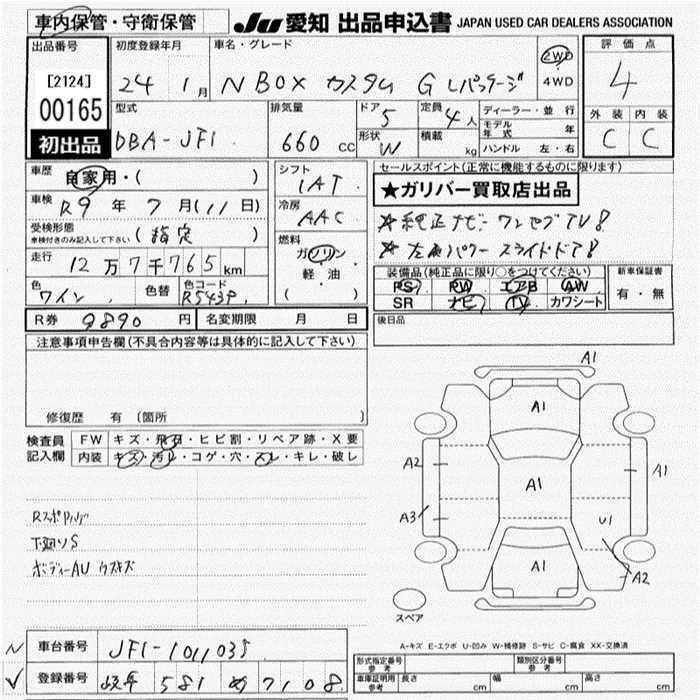 車内保管・守衛保管
JU 愛知 出品申込書 JAPAN USED CAR DEALERS ASSOCIATION
出品番号
[2124]
00165
初出品
初度登録年月
24 1月
車名・グレード
N BOX カスタム G Lパッケージ
2WD
4WD
評価点
4
外装 内装
C C
型式
DBA-JF1
排気量
660 CC
ドア
5
形状
W
定員
4人
積載
kg
ディーラー・並行
モデル年式 年
ハンドル 左・右
車歴
自家用・( )
車検
R9年7月(11日)
受検形態
車検付きのみ記入して下さい (指定)
走行
12万7千765km
色
ワイン
色替
色コード
R543P
R券 9890円
名変期限 月 日
シフト
IAT
冷房
AAC
燃料
ガソリン
軽・油
( )
セールスポイント(正常に機能するものに限ります)
★ガリバー買取店出品
☆純正ナビ ワンセグTV!
☆左側パワースライドドア!
装備品(純正品に限り○をつけてください)
PS PW エアB AW
SR ナビ TV カワシート
新車保証書
有・無
後日品
注意事項申告欄(不具合内容等は具体的に記入して下さい)
修復歴 有 (箇所 )
検査員記入欄
FW キズ・飛石・ヒビ割・リペア跡・X要
内装 キズ・汚レ・コゲ・穴・スレ・キレ・破レ
下廻りS
ボディーAU ウスキズ
A1
A1
A2
A1
A1
A3
U1
A1
A2
スペア
A-キズ E-エクボ U-凹み W-補修跡 S-サビ C-腐食 XX-交換済
N 車台番号 JF1-1011035
✓ 登録番号 岐阜 581 7108
形式指定番号 参考
類別区分番号 参考
車庫証明用 参考 長さ cm 幅 cm 高さ cm